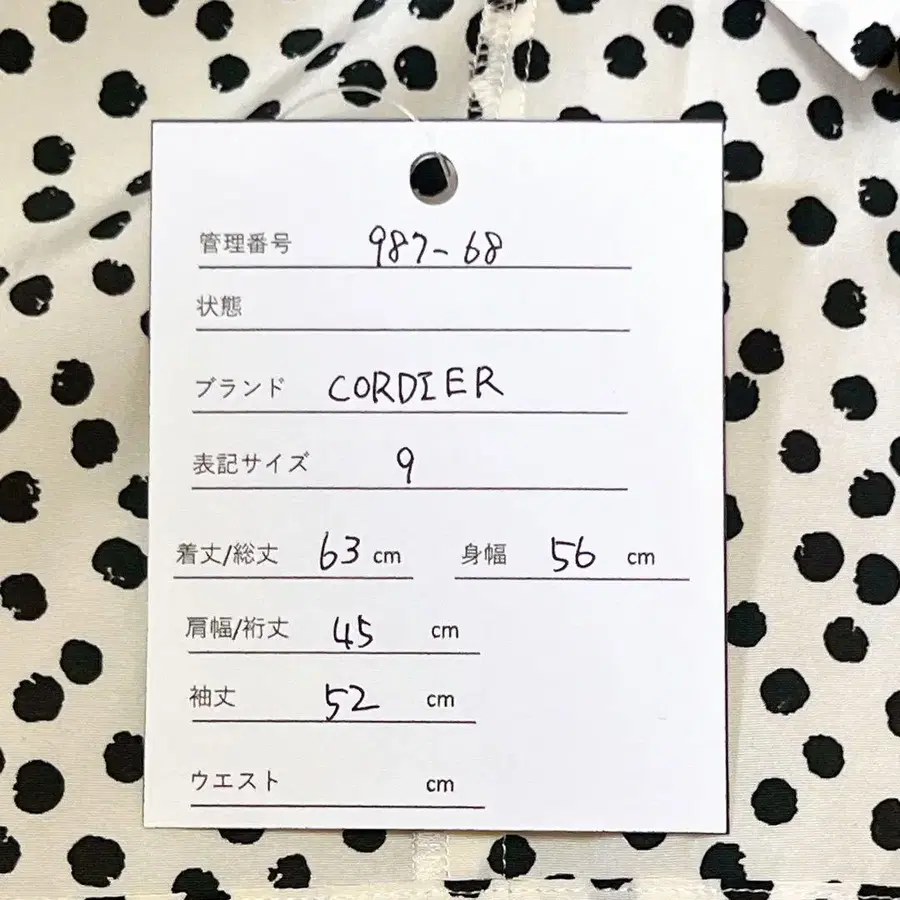 管理番号 987-68
状態
ブランド CORDIER
表記サイズ 9
着丈/総丈 63 cm 身幅 56 cm
肩幅/裄丈 45 cm
袖丈 52 cm
ウエスト cm